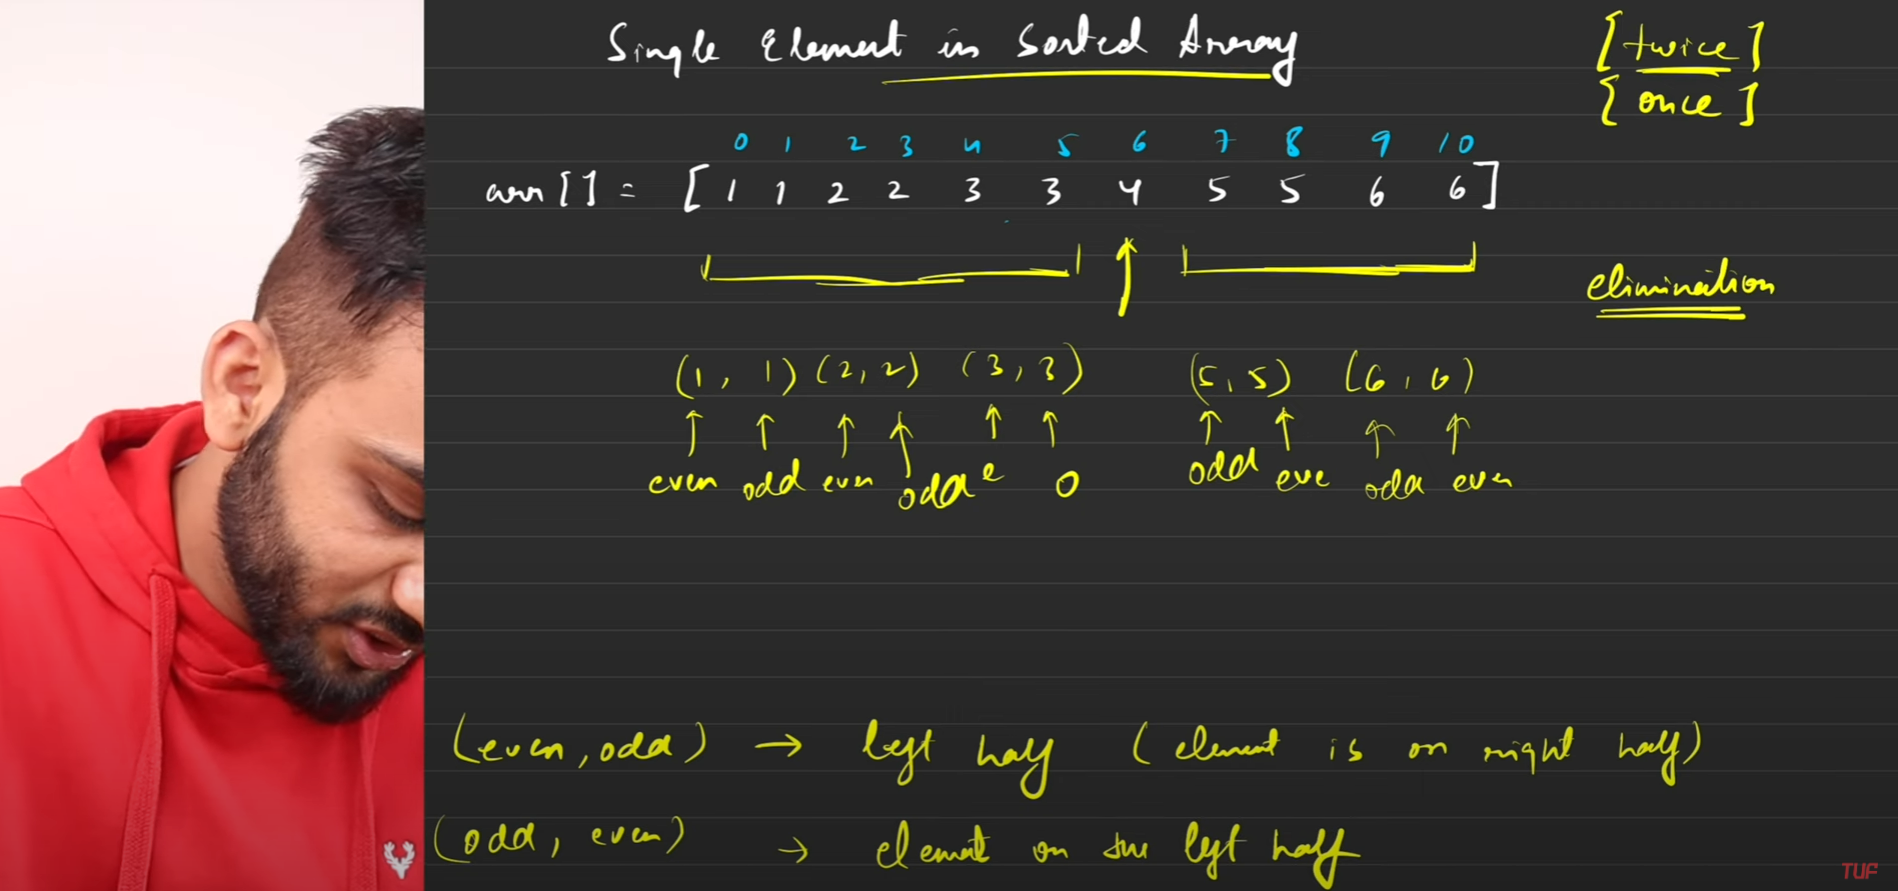 Single Element in Sorted Array
[twice]
[once]
0 1 2 3 4 5 6 7 8 9 10
arr[] = [ 1 1 2 2 3 3 4 5 5 6 6 ]
elimination
(1, 1) (2, 2) (3, 3) (5, 5) (6, 6)
even odd even odd e o odd eve odd even
(even, odd) → left half (element is on right half)
(odd, even) → element on the left half
TUF